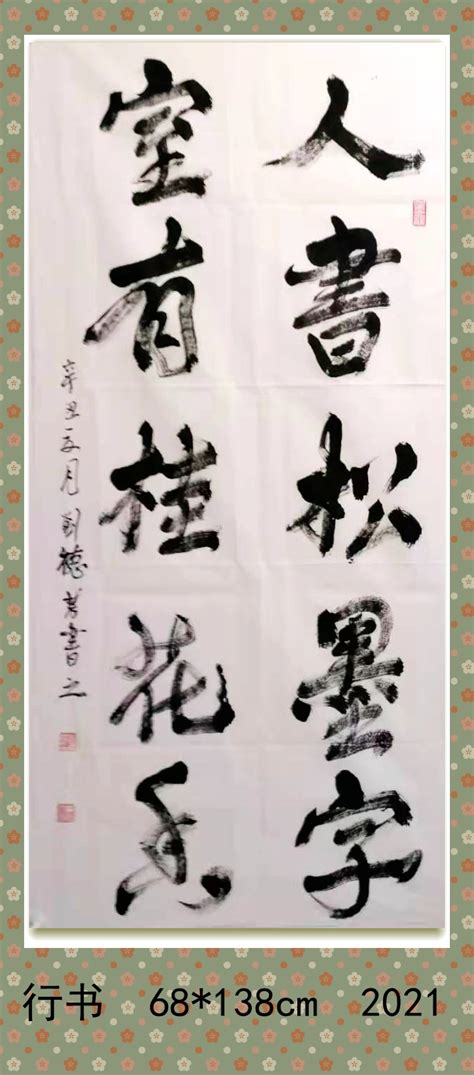 人書松墨字
室有桂花香
辛丑五月刘德芳書之
行书 68*138cm 2021